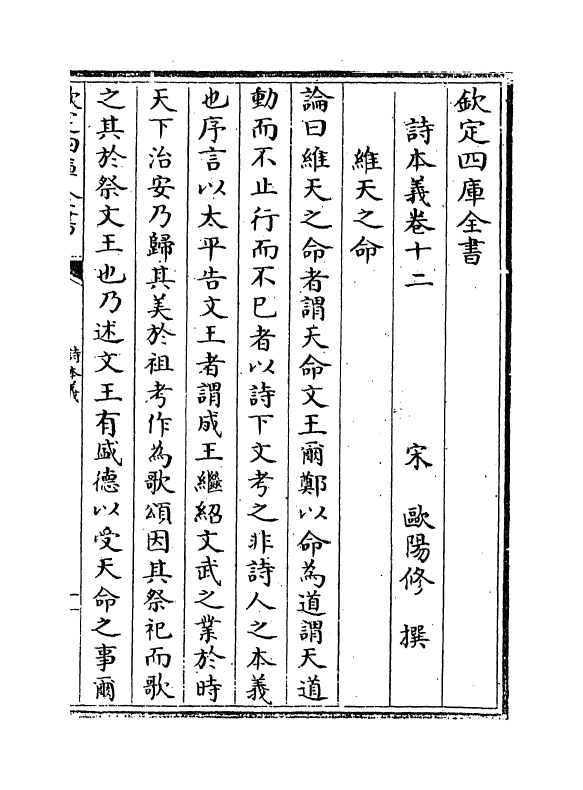 欽定四庫全書
詩本義卷十二 宋 歐陽修 撰
維天之命
論曰維天之命者謂天命文王爾鄭以命為道謂天道
動而不止行而不已者以詩下文考之非詩人之本義
也序言以太平告文王者謂成王繼紹文武之業於時
天下治安乃歸其美於祖考作為歌頌因其祭祀而歌
之其於祭文王也乃述文王有盛德以受天命之事爾
欽定四庫全書
詩本義